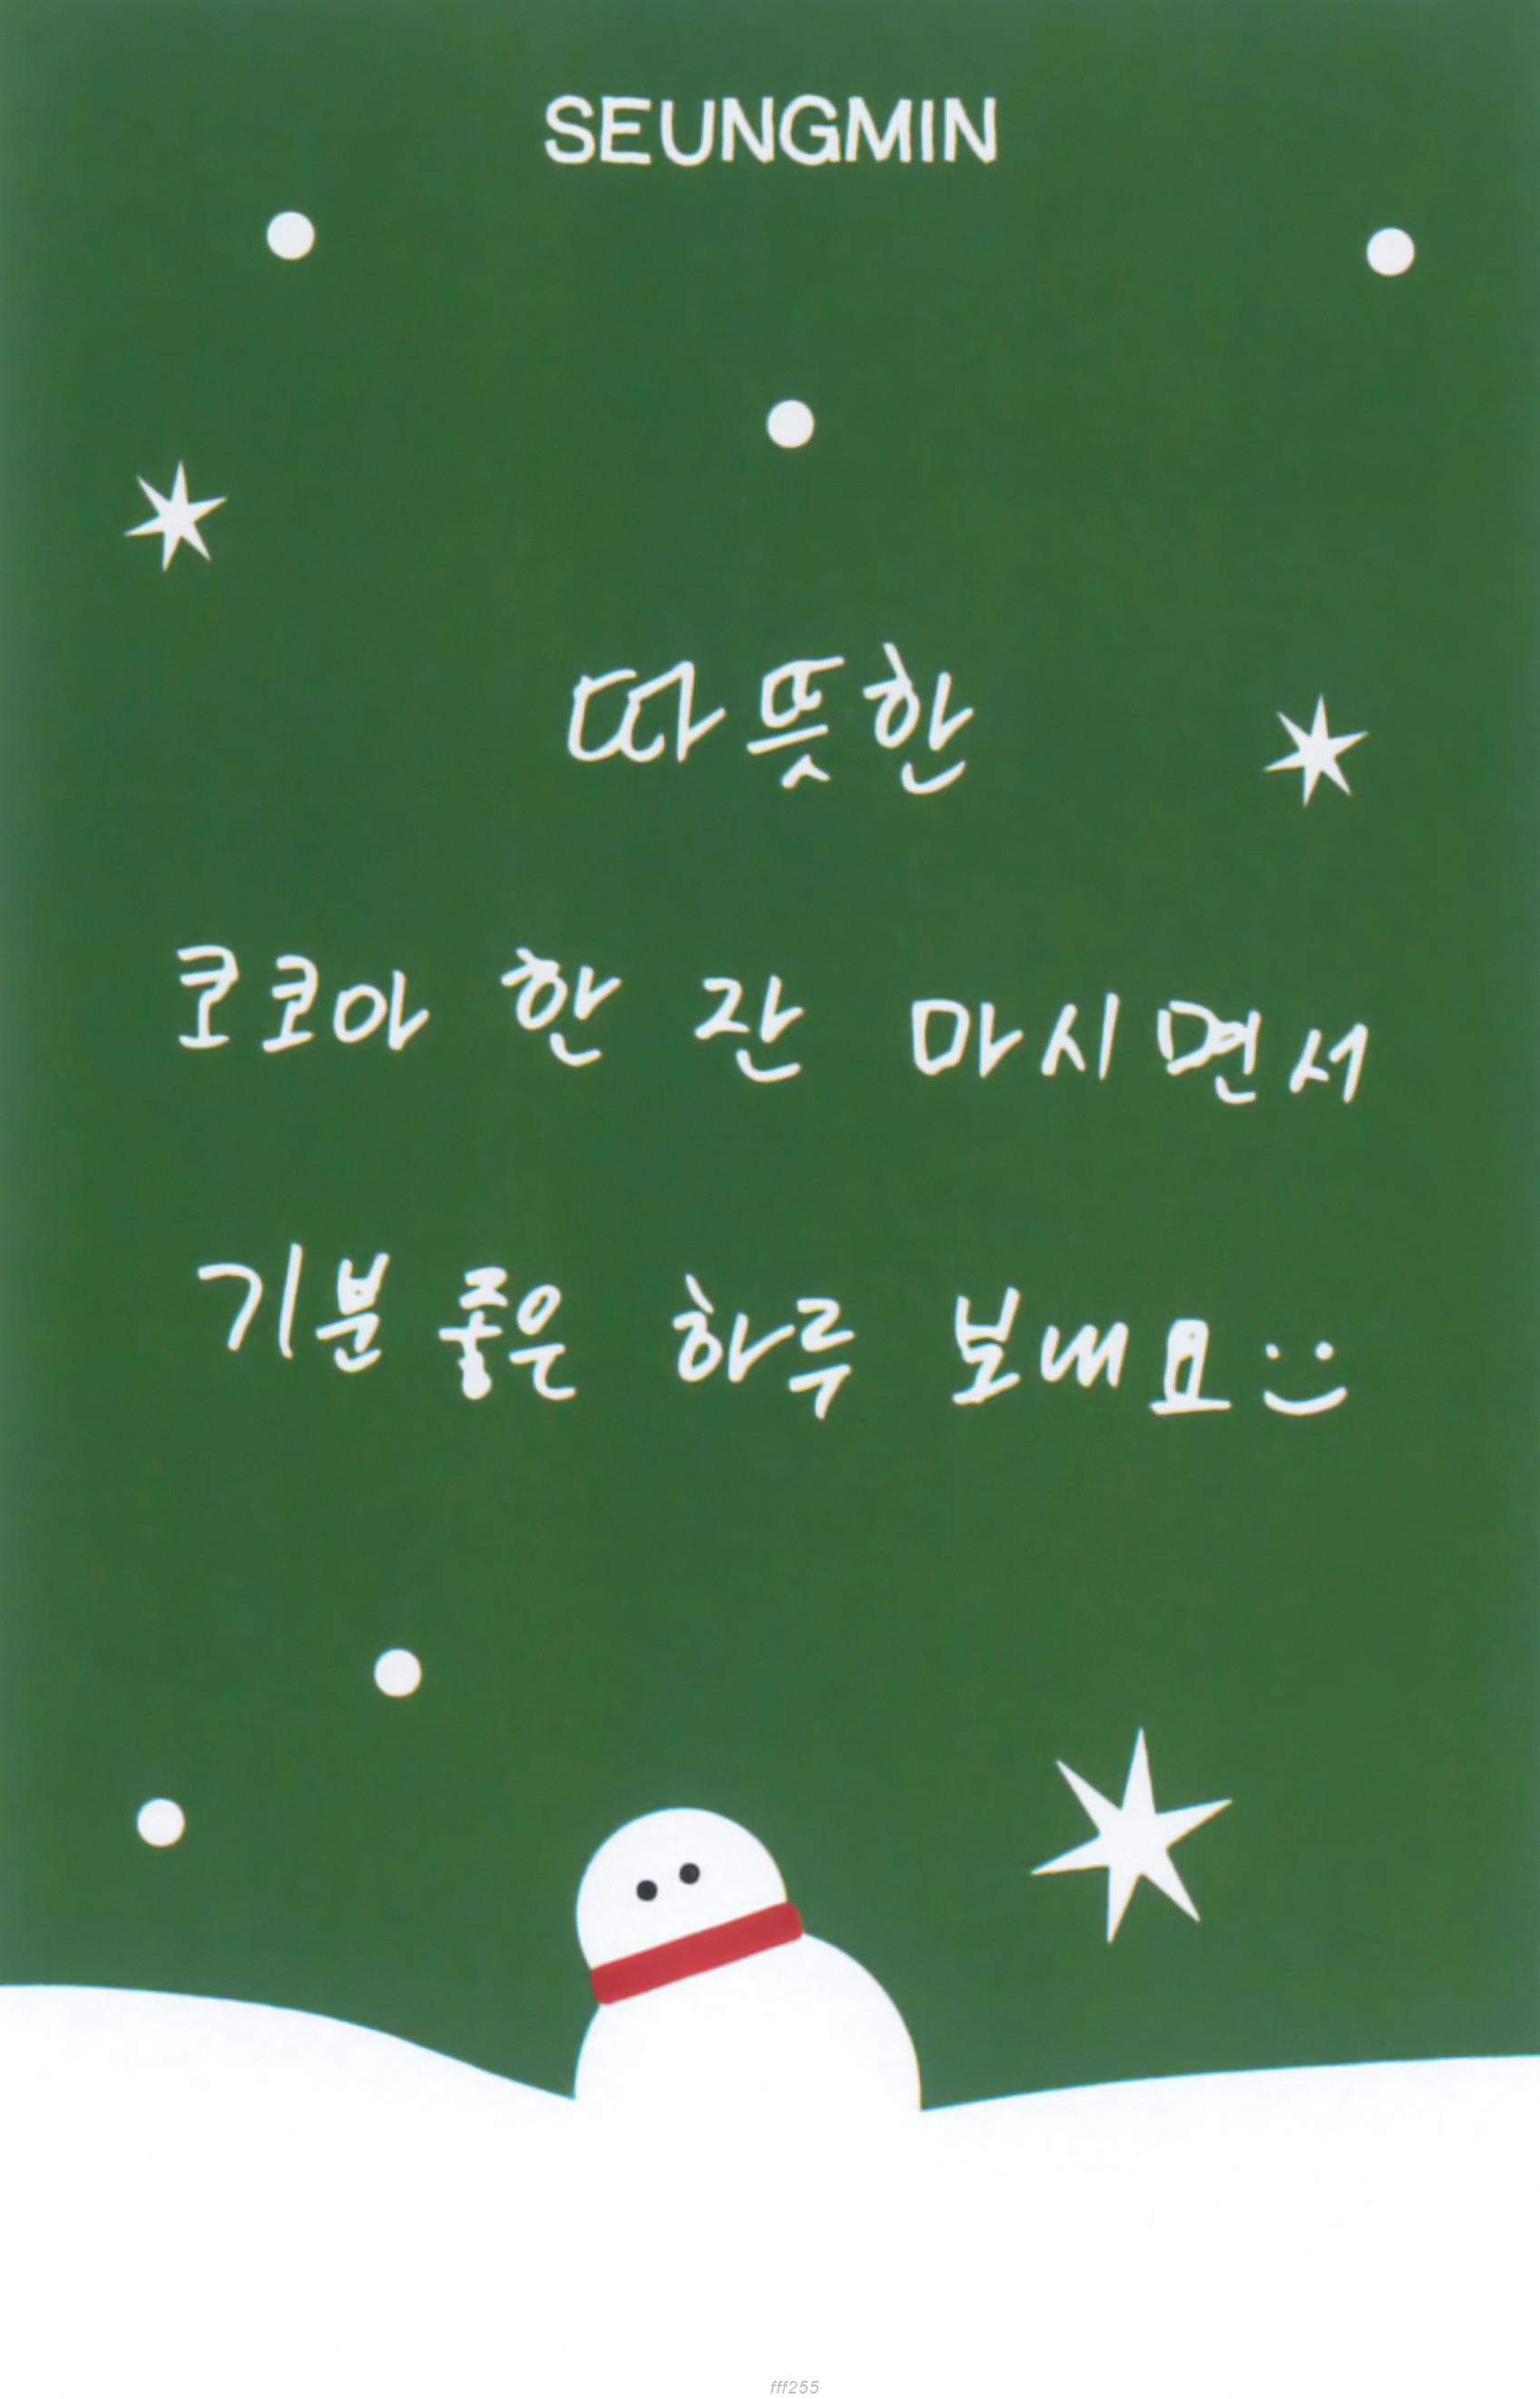 SEUNGMIN
따뜻한
코코아 한 잔 마시면서
기분 좋은 하루 보내요:)
fff255